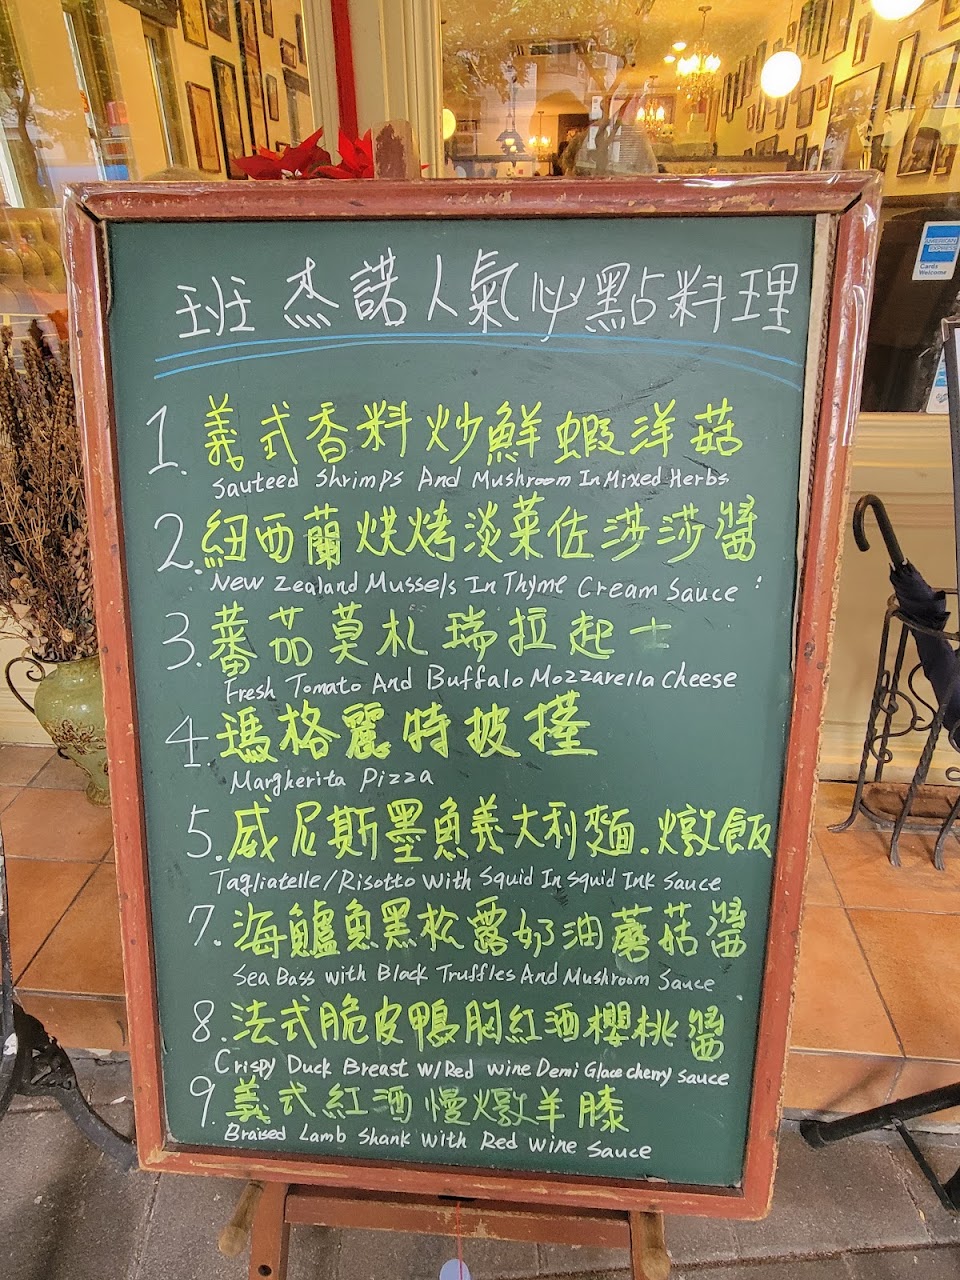 班杰諾人氣必點料理
1. 義式香料炒鮮蝦洋菇
Sauteed Shrimps And Mushroom In Mixed Herbs
2. 紐西蘭烘烤淡菜佐莎莎醬
New Zealand Mussels In Thyme Cream Sauce
3. 蕃茄莫札瑞拉起士
Fresh Tomato And Buffalo Mozzarella Cheese
4. 瑪格麗特披薩
Margherita Pizza
5. 威尼斯墨魚義大利麵.燉飯
Tagliatelle/Risotto with Squid In Squid Ink Sauce
7. 海鱸魚黑松露奶油蘑菇醬
Sea Bass with Black Truffles And Mushroom Sauce
8. 法式脆皮鴨胸紅酒櫻桃醬
Crispy Duck Breast w/Red wine Demi Glace cherry sauce
9. 義式紅酒慢燉羊膝
Braised Lamb Shank with Red Wine Sauce
AMERICAN EXPRESS
Cards
Welcome